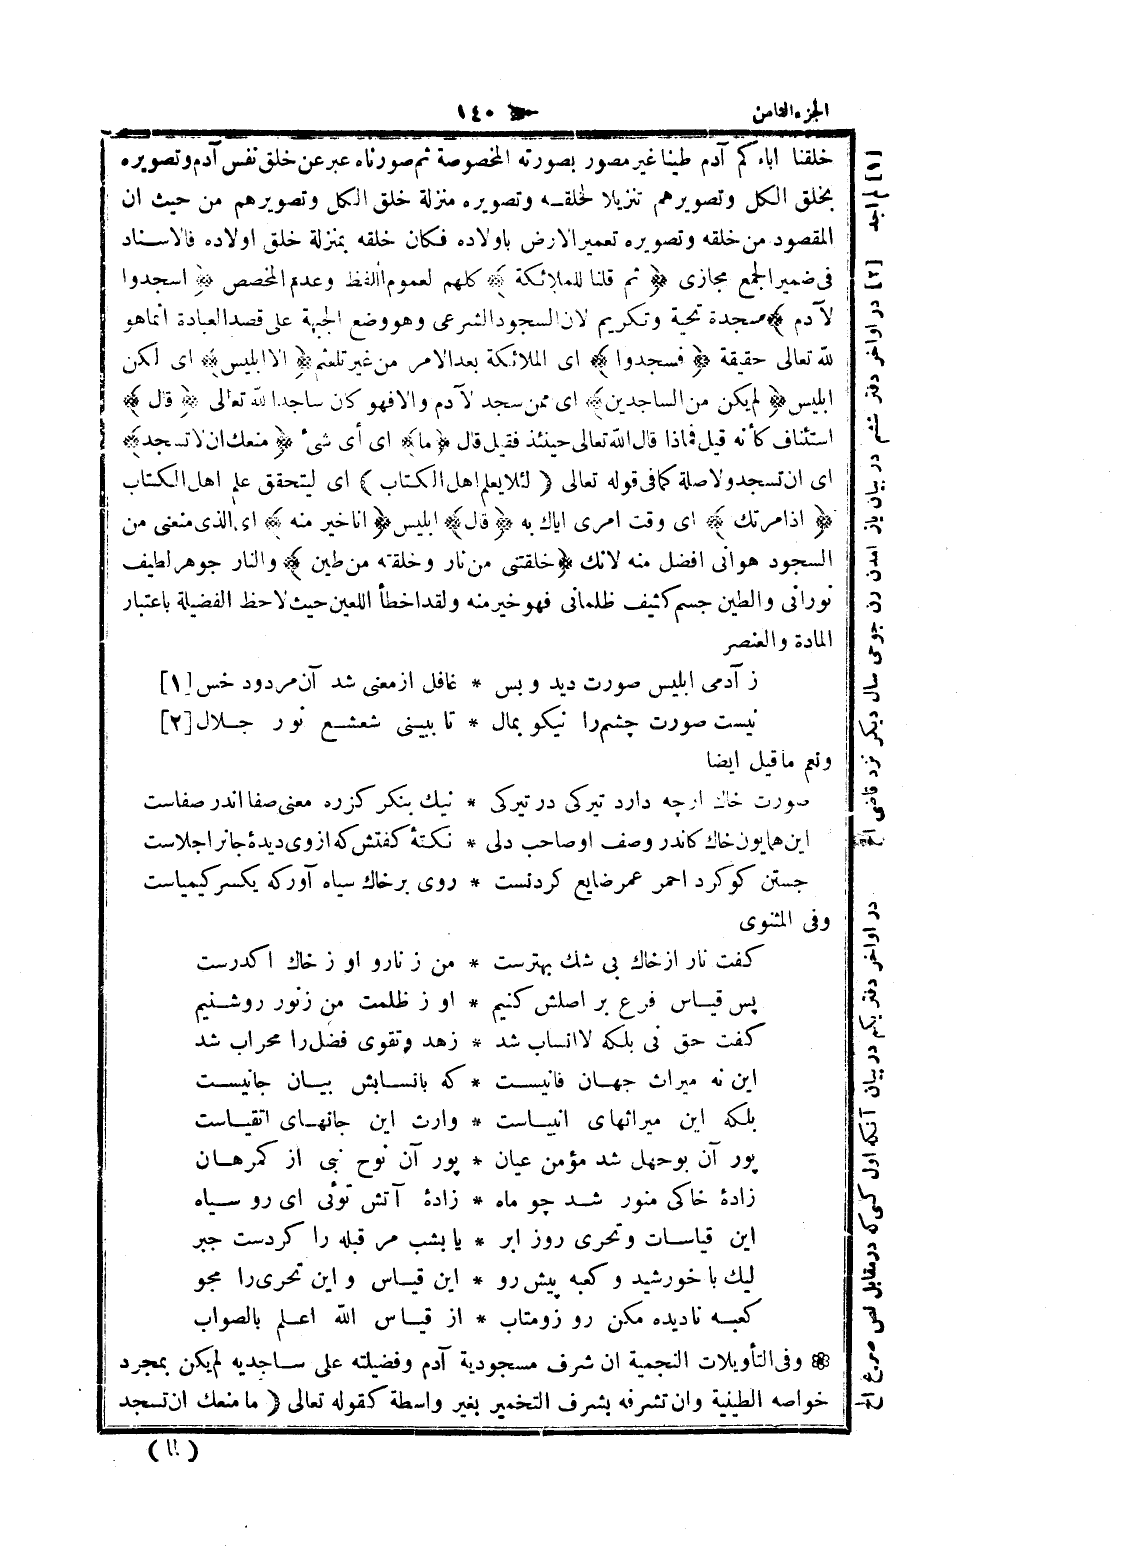 الجزء الثامن
١٤٠
خلقنا اباءكم آدم طينا غير مصور بصورته المخصوصة ثم صورناه عبر عن خلق نفس آدم وتصويره
بخلق الكل وتصويرهم تنزيلا لخلقه وتصويره منزلة خلق الكل وتصويرهم من حيث ان
المقصود من خلقه وتصويره تعمير الارض باولاده فكان خلقه بمنزلة خلق اولاده فالاسناد
فى ضمير الجمع مجازى ﴿ ثم قلنا للملائكة ﴾ كلهم لعموم اللفظ وعدم المخصص ﴿ اسجدوا
لآدم ﴾ سجدة تحية وتكريم لان السجود الشرعى وهو وضع الجبهة على قصد العبادة انما هو
لله تعالى حقيقة ﴿ فسجدوا ﴾ اى الملائكة بعد الامر من غير تلعثم ﴿ الا ابليس ﴾ اى لكن
ابليس ﴿ لم يكن من الساجدين ﴾ اى ممن سجد لآدم والا فهو كان ساجدا لله تعالى ﴿ قال ﴾
استئناف كأنه قيل فماذا قال الله تعالى حينئذ فقيل قال ﴿ ما ﴾ اى أى شئ ﴿ منعك ان لا تسجد ﴾
اى ان تسجد ولا صلة كما فى قوله تعالى ( لئلا يعلم اهل الكتاب ) اى ليتحقق علم اهل الكتاب
﴿ اذ امرتك ﴾ اى وقت امرى اياك به ﴿ قال ﴾ ابليس ﴿ انا خير منه ﴾ اى الذى منعنى من
السجود هو انى افضل منه لانك ﴿ خلقتنى من نار وخلقته من طين ﴾ والنار جوهر لطيف
نورانى والطين جسم كثيف ظلمانى فهو خير منه ولقد اخطأ اللعين حيث لاحظ الفضيلة باعتبار
المادة والعنصر
ز آدمى ابليس صورت ديد وبس * غافل از معنى شد آن مردود خس [١]
نيست صورت چشم را نيكو بمال * تا ببينى شعشع نور جلال [٢]
ونعم ما قيل ايضا
صورت خاك ارچه دارد تيركى در تيركى * نيك بنكر كزره معنى صفا اندر صفاست
اين همايون خاك كاندر وصف او صاحب دلى * نكتهٔ كفتش كه از وى ديدهٔ جانرا جلاست
جستن كوكرد احمر عمر ضايع كردنست * روى بر خاك سياه آور كه يكسر كيمياست
وفى المثنوى
كفت نار از خاك بى شك بهترست * من ز نار واو ز خاك اكدرست
پس قياس فرع بر اصلش كنيم * او ز ظلمت من ز نور روشنيم
كفت حق نى بلكه لا انساب شد * زهد وتقوى فضل را محراب شد
اين نه ميراث جهان فانيست * كه بانسابش بيان جانيست
بلكه اين ميراثهاى انبياست * وارث اين جانهاى اتقياست
پور آن بوجهل شد مؤمن عيان * پور آن نوح نبى از كمرهان
زادهٔ خاكى منور شد چو ماه * زادهٔ آتش توئى اى رو سياه
اين قياسات وتحرى روز ابر * يا بشب مر قبله را كردست جبر
ليك با خورشيد وكعبه پيش رو * اين قياس واين تحرى را مجو
كعبه ناديده مكن رو زو متاب * از قياس الله اعلم بالصواب
❁ وفى التأويلات النجمية ان شرف مسجودية آدم وفضيلته على ساجديه لم يكن بمجرد
خواصه الطينية وان تشرفه بشرف التخمير بغير واسطة كقوله تعالى ( ما منعك ان تسجد
[١] [٢] در اواخر دفتر ششم در بيان باز آمدن زن جوحى سال ديكر نزد قاضى الخ
در اواخر دفتر يكم در بيان آنكه اول كسى كه در مقابل نص صريح الخ